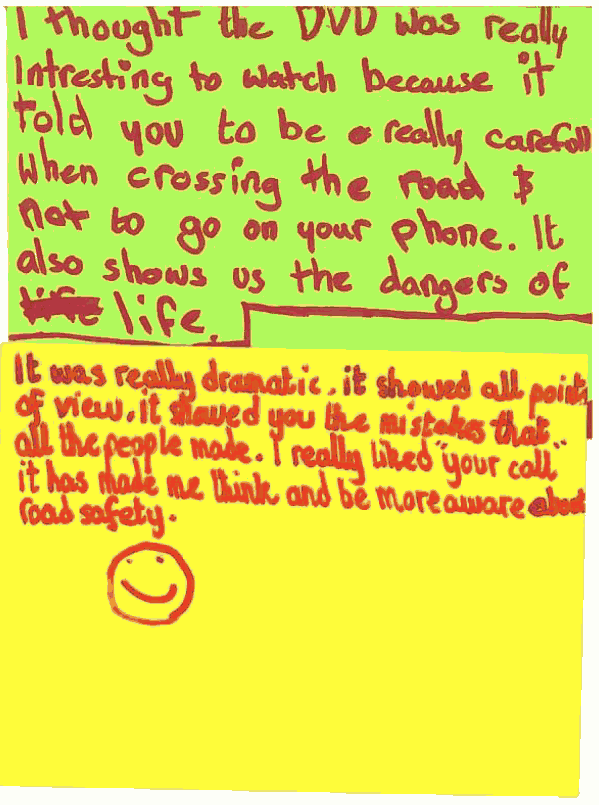 I thought the DVD was really
Intresting to watch because it
told you to be really carefull
when crossing the road &
not to go on your phone. It
also shows us the dangers of
life life.
It was really dramatic. it showed all points
of view. it showed you the mistakes that
all the people made. I really liked "your call"
it has made me think and be more aware about
road safety.